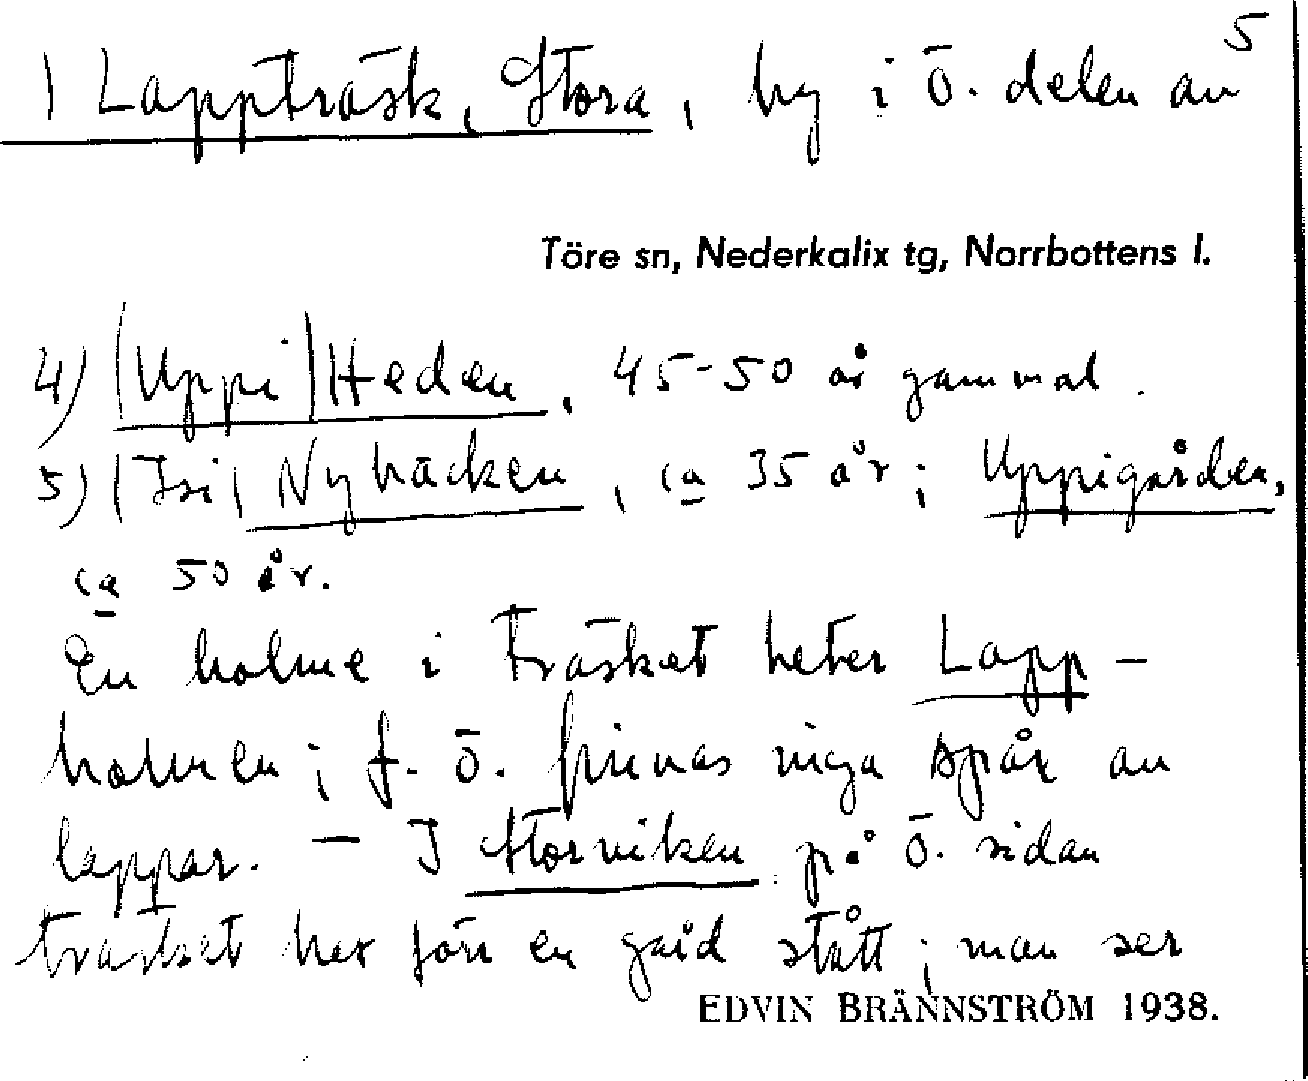 5
) Lappträsk, Stora, by i ö. delen av
Töre sn, Nederkalix tg, Norrbottens l.
4) |Uppi|Heden, 45-50 år gammal.
5) |Isi| Nybäcken, ca 35 år; Uppigården,
ca 50 år.
En holme i träsket heter Lapp-
holmen; f. ö. finnas inga spår av
lappar. – I Storviken på ö. sidan
träsket har förr en gård stått; man ser
EDVIN BRÄNNSTRÖM 1938.